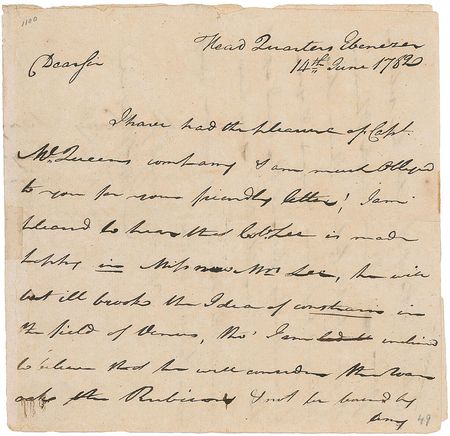 1100
Head Quarters Ebenezer
14th June 1782
Dear Sir
I have had the pleasure of Capt.
McQueens company & am much obliged
to you for your friendly letter! I am
pleased to hear that Col. Lee is made
happy in Miss now Mrs Lee, he will
but ill brook the Idea of constrains in
the field of Venus, tho' I am inclined
to believe that he will consider the
the Rubicon & not be bound by
any
49